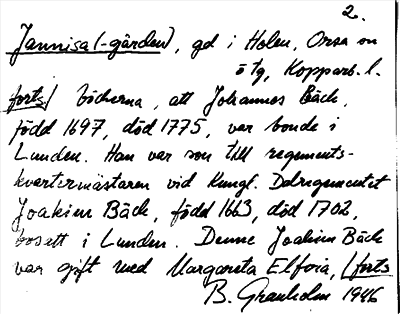 2.
Jannisa (-gården), gd i Holen, Orsa sn
ö tg, Kopparb. l.
forts/ böckerna, att Johannes Bäck,
född 1697, död 1775, var bonde i
Lunden. Han var son till regements-
kvartermästaren vid Kungl. Dalregementet
Joakim Bäck, född 1663, död 1702,
bosatt i Lunden. Denne Joakim Bäck
var gift med Margareta Elfvia, /forts
B. Granholm 1946